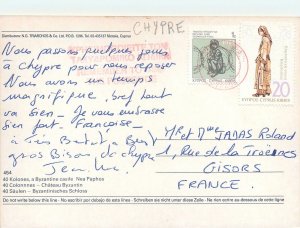 Distributors: N.G. TRIARCHOS & Co. Ltd. P.O.B. 1296. Tel. 02-435127 Nicosia, Cyprus
CHYPRE
Nous passons quelques jours
à Chypre pour nous reposer
Nous avons un temps
magnifique, bref tout
va bien - Je vous embrasse
bien fort - Françoise -
à Très Bientôt
gros Bisou de Chypre
1, Rue de la
GISORS
FRANCE.
20
KIBRIS CYPRUS
#54
40 Kolones, a Byzantine castle Nea Paphos
40 Colonnes - Château Byzantin
40 Säulen - Byzantinisches Schloss
Do not write below this line - No escribir por debajo de esta linea - Schreiben sie nicht unter dieser Zeile - Ne rien ecrire au-dessous de cette ligne